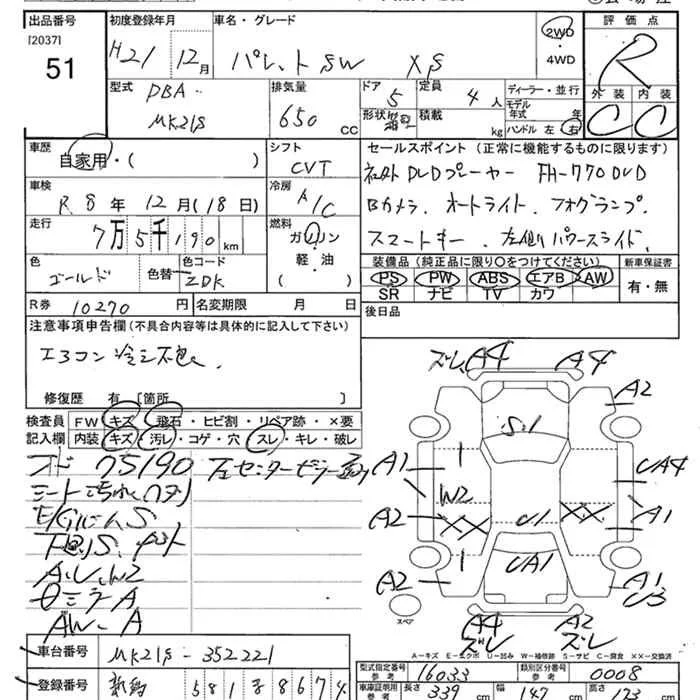 出品番号 初度登録年月 車名・グレード 評価点
[2037] H21 12月 パレットSW XS 2WD・4WD R
51
型式 排気量 ドア 定員 ディーラー・並行 外装 内装
DBA- MK21S 650 CC 5 4人 モデル年式 年 C C
形状 積載 kg ハンドル 左・右
車歴 シフト セールスポイント(正常に機能するものに限ります)
自家用・( ) CVT DVDプレーヤー FH-770DVD
車検 冷房 Bカメラ、オートライト、フォグランプ、
R8年12月(18日) A/C スマートキー、左側パワースライド、
走行 燃料 装備品(純正品に限り○をつけてください) 新車保証書
7万5千190km ガソリン PS PW ABS エアB AW 有・無
軽・油 SR ナビ TV カワ
( )
色 色替 色コード
ゴールド ZDK
R券 10270円 名変期限 月 日 後日品
注意事項申告欄(不具合内容等は具体的に記入して下さい)
エアコン冷え不良、
修復歴 有[箇所 ]
検査員 FW キズ・飛石・ヒビ割・リペア跡・×要
記入欄 内装 キズ・汚レ・コゲ・穴 スレ・キレ・破レ
オド 75190
シート汚れ
A・U、W2
AW-A
ズレ A4 A4
A2
S・1
A1 UA4
W2
A2 XX U1 XX A1
A2 UA1 A1
U3
スペア
A4 A2
ズレ ズレ
A-キズ E-エクボ U-凹み W-補修跡 S-サビ C-腐食 XX-交換済
車台番号 MK21S-352221
型式指定番号 参考 16033 類別区分番号 参考 0008
登録番号 581 8674
車庫証明用 参考 長さ 339cm 幅 147cm 高さ 173cm